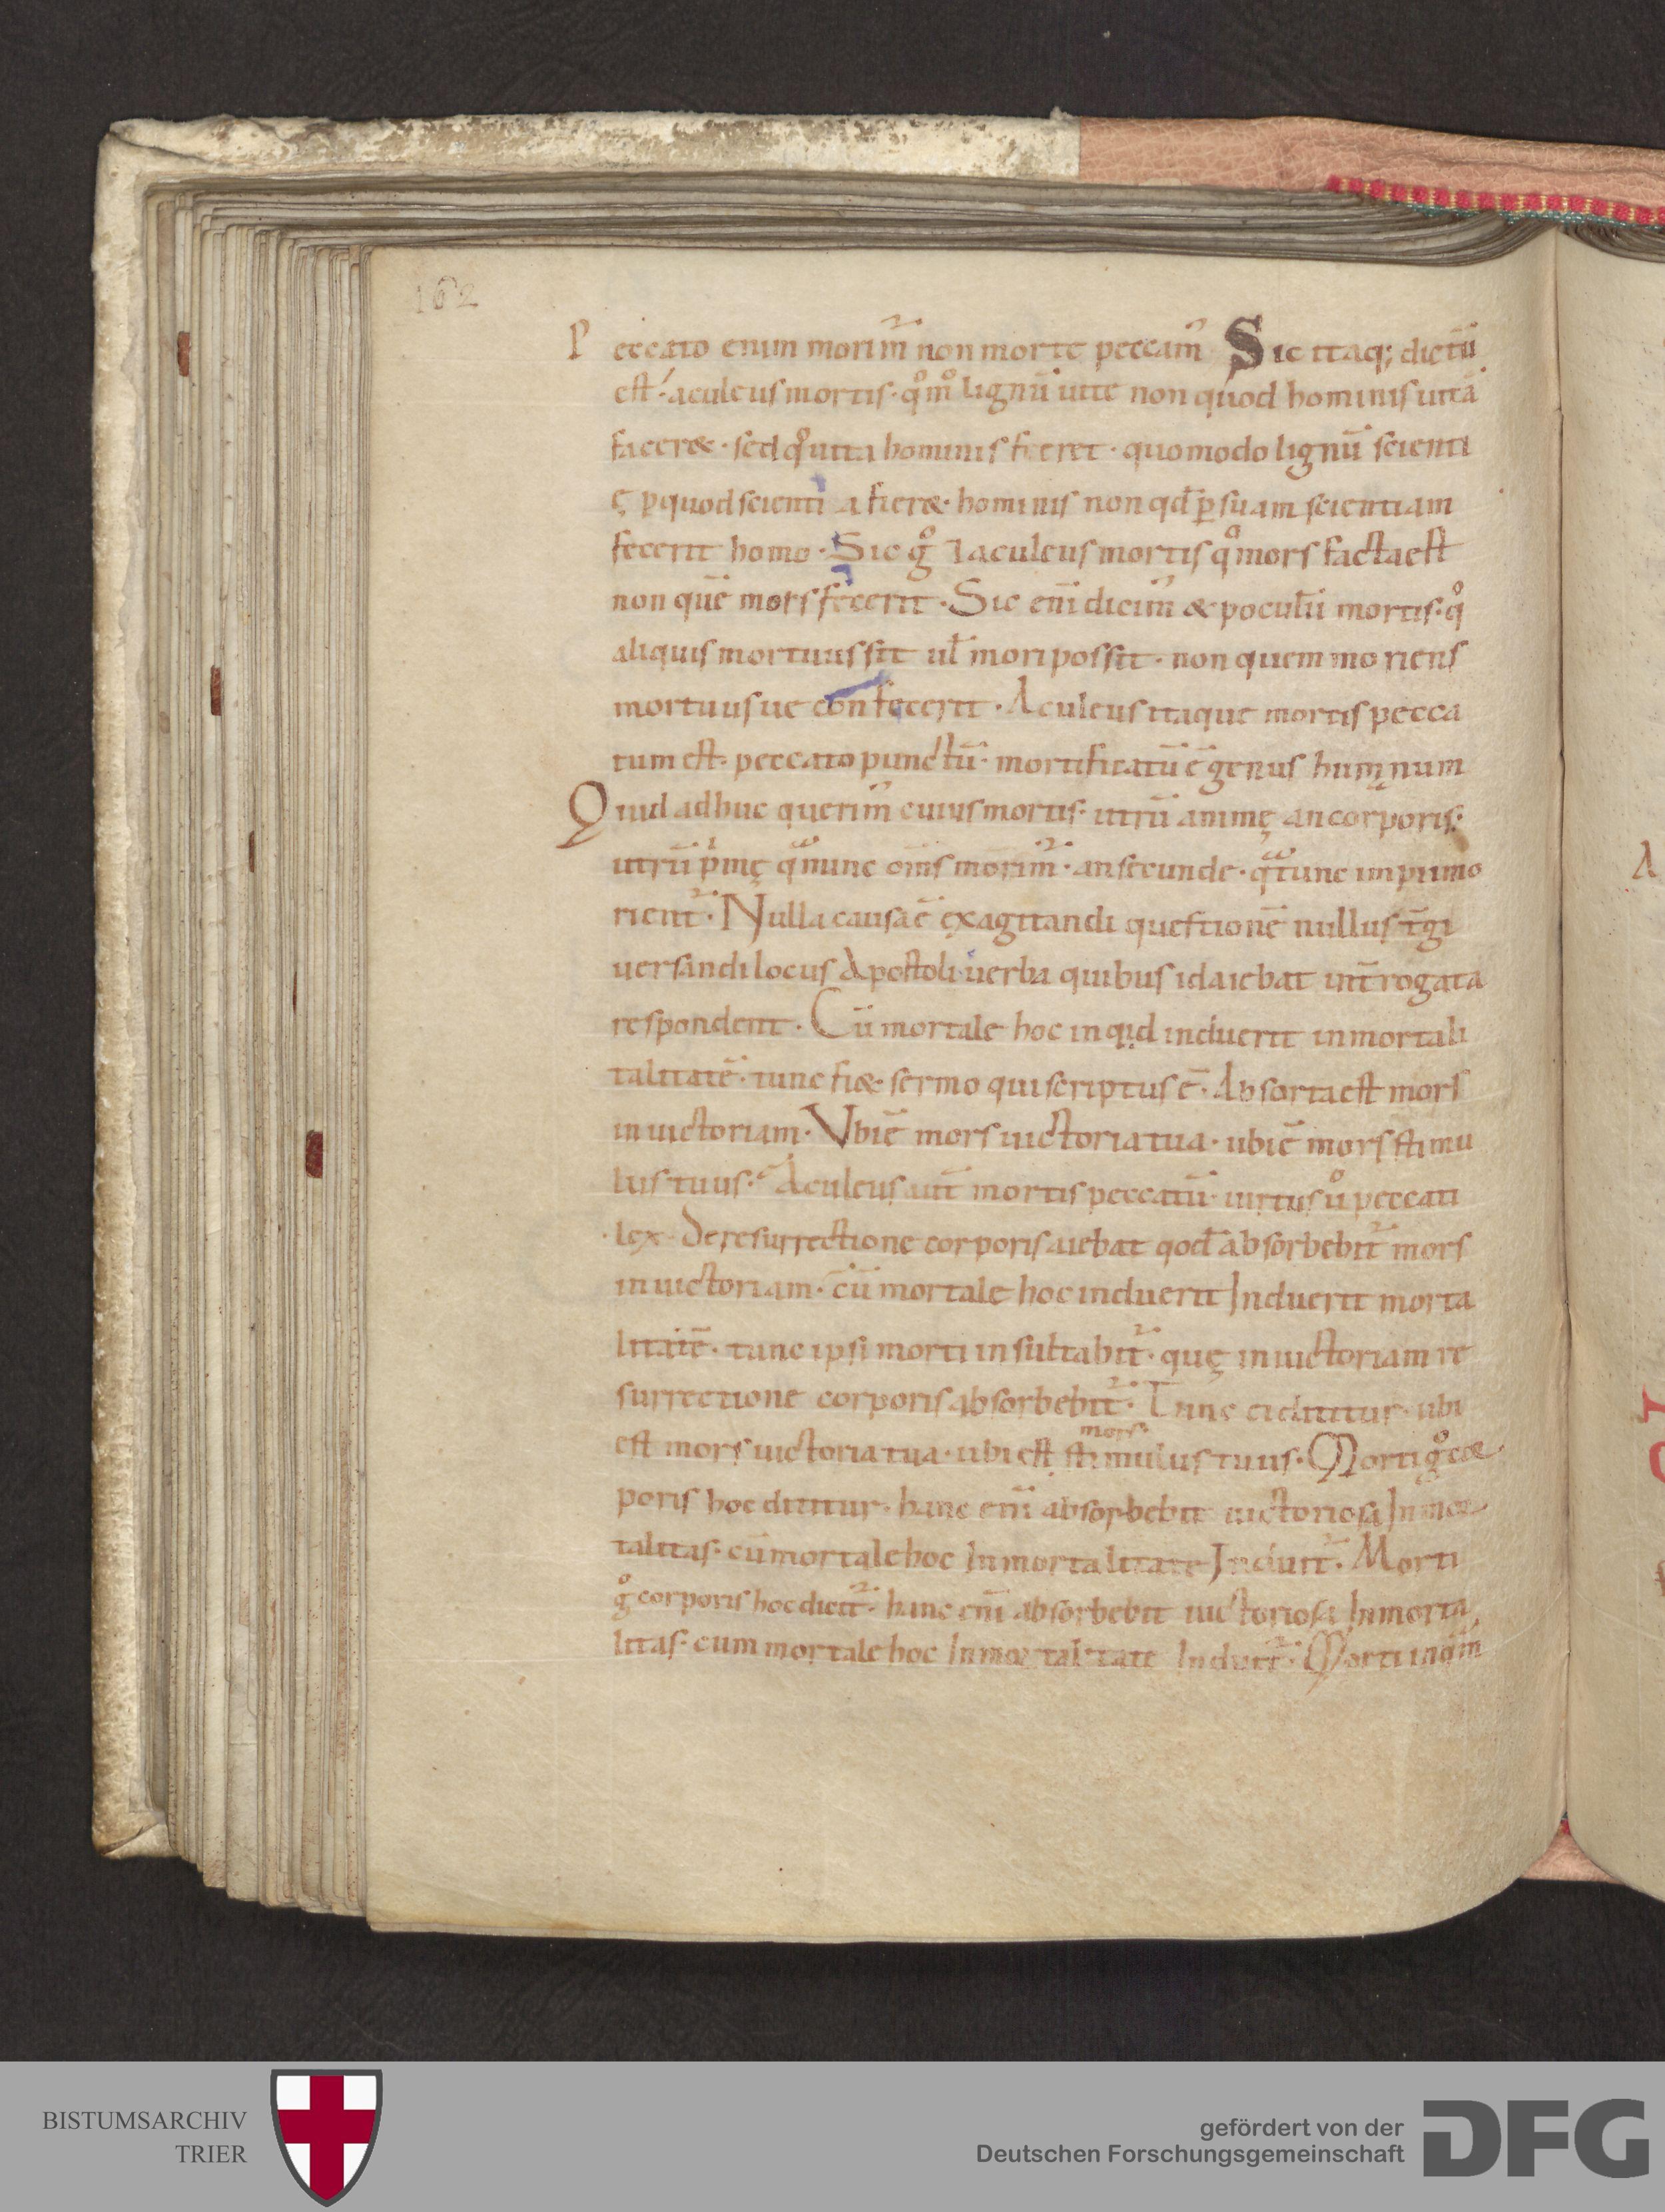 162
Peccato enim morim᷑ non morte peccam᷒ Sic itaq; dictū
est. aculeus mortis. qͦmͦ lignū uite non quod hominis uitā
facer&. sed qͦ uita hominis fieret. quomodo lignū scienti
ę p quod scienti a fier& hominis non qđ p̱ suam scientiam
fecerit homo. Sic gͦ ⁊ aculeus mortis qͦ mors facta est
non quē mors fecerit. Sic enī dicim᷒ & poculū mortis. qͦ
aliquis mortuus sit ul̄ mori possit. non quem moriens
mortuusue confecerit. Aculeus itaque mortis pecca
tum est. peccato punctū. mortificatū ē genus humanum
Quid adhuc querim᷒ cuius mortis. utrū animę an corporis.
utrū pͥmę qᷓ nunc om̄s morim᷑. an secunde. qᷓ tunc impiimo
rient᷑. Nulla causa ē exagitandi questionē nullus t̄gi
uersandi locus Apostoli uerba quibus id aiebat int̄rogata
respondent. Cū mortale hoc inqid induerit inmortali
talitatē. tunc fi& sermo qui scriptus ē. Absorta est mors
in uictoriam. Vbi ē mors uictoria tua. ubi ē mors stimu
lus tuus. Aculeus aut̄ mortis peccatū. uirtus uͦ peccati
lex. De resurrectione corporis aiebat qod̄ absorbebit᷑ mors
in uictoriam. cū mortale hoc induerit Induerit morta
litatē. tunc ipsi morti insultabit᷑. quę in uictoriam re
surrectione corporis absorbebit᷑. Tunc ei dicitur ubi
mors
est mors uictoria tua. ubi est stimulus tuus. Morti gͦ cor
poris hoc dicitur. hanc enī absorbebit uictoriosa Inmor
talitas. cū mortale hoc Inmortalitate Induit᷑. Morti
gͦ corporis hoc dicit᷑. hanc enī absorbebit uictoriosa Inmorta
litas. cum mortale hoc Inmortalitate Induit᷑. Morti inqͣm
A
BISTUMSARCHIV
TRIER
gefördert von der
Deutschen Forschungsgemeinschaft
DFG